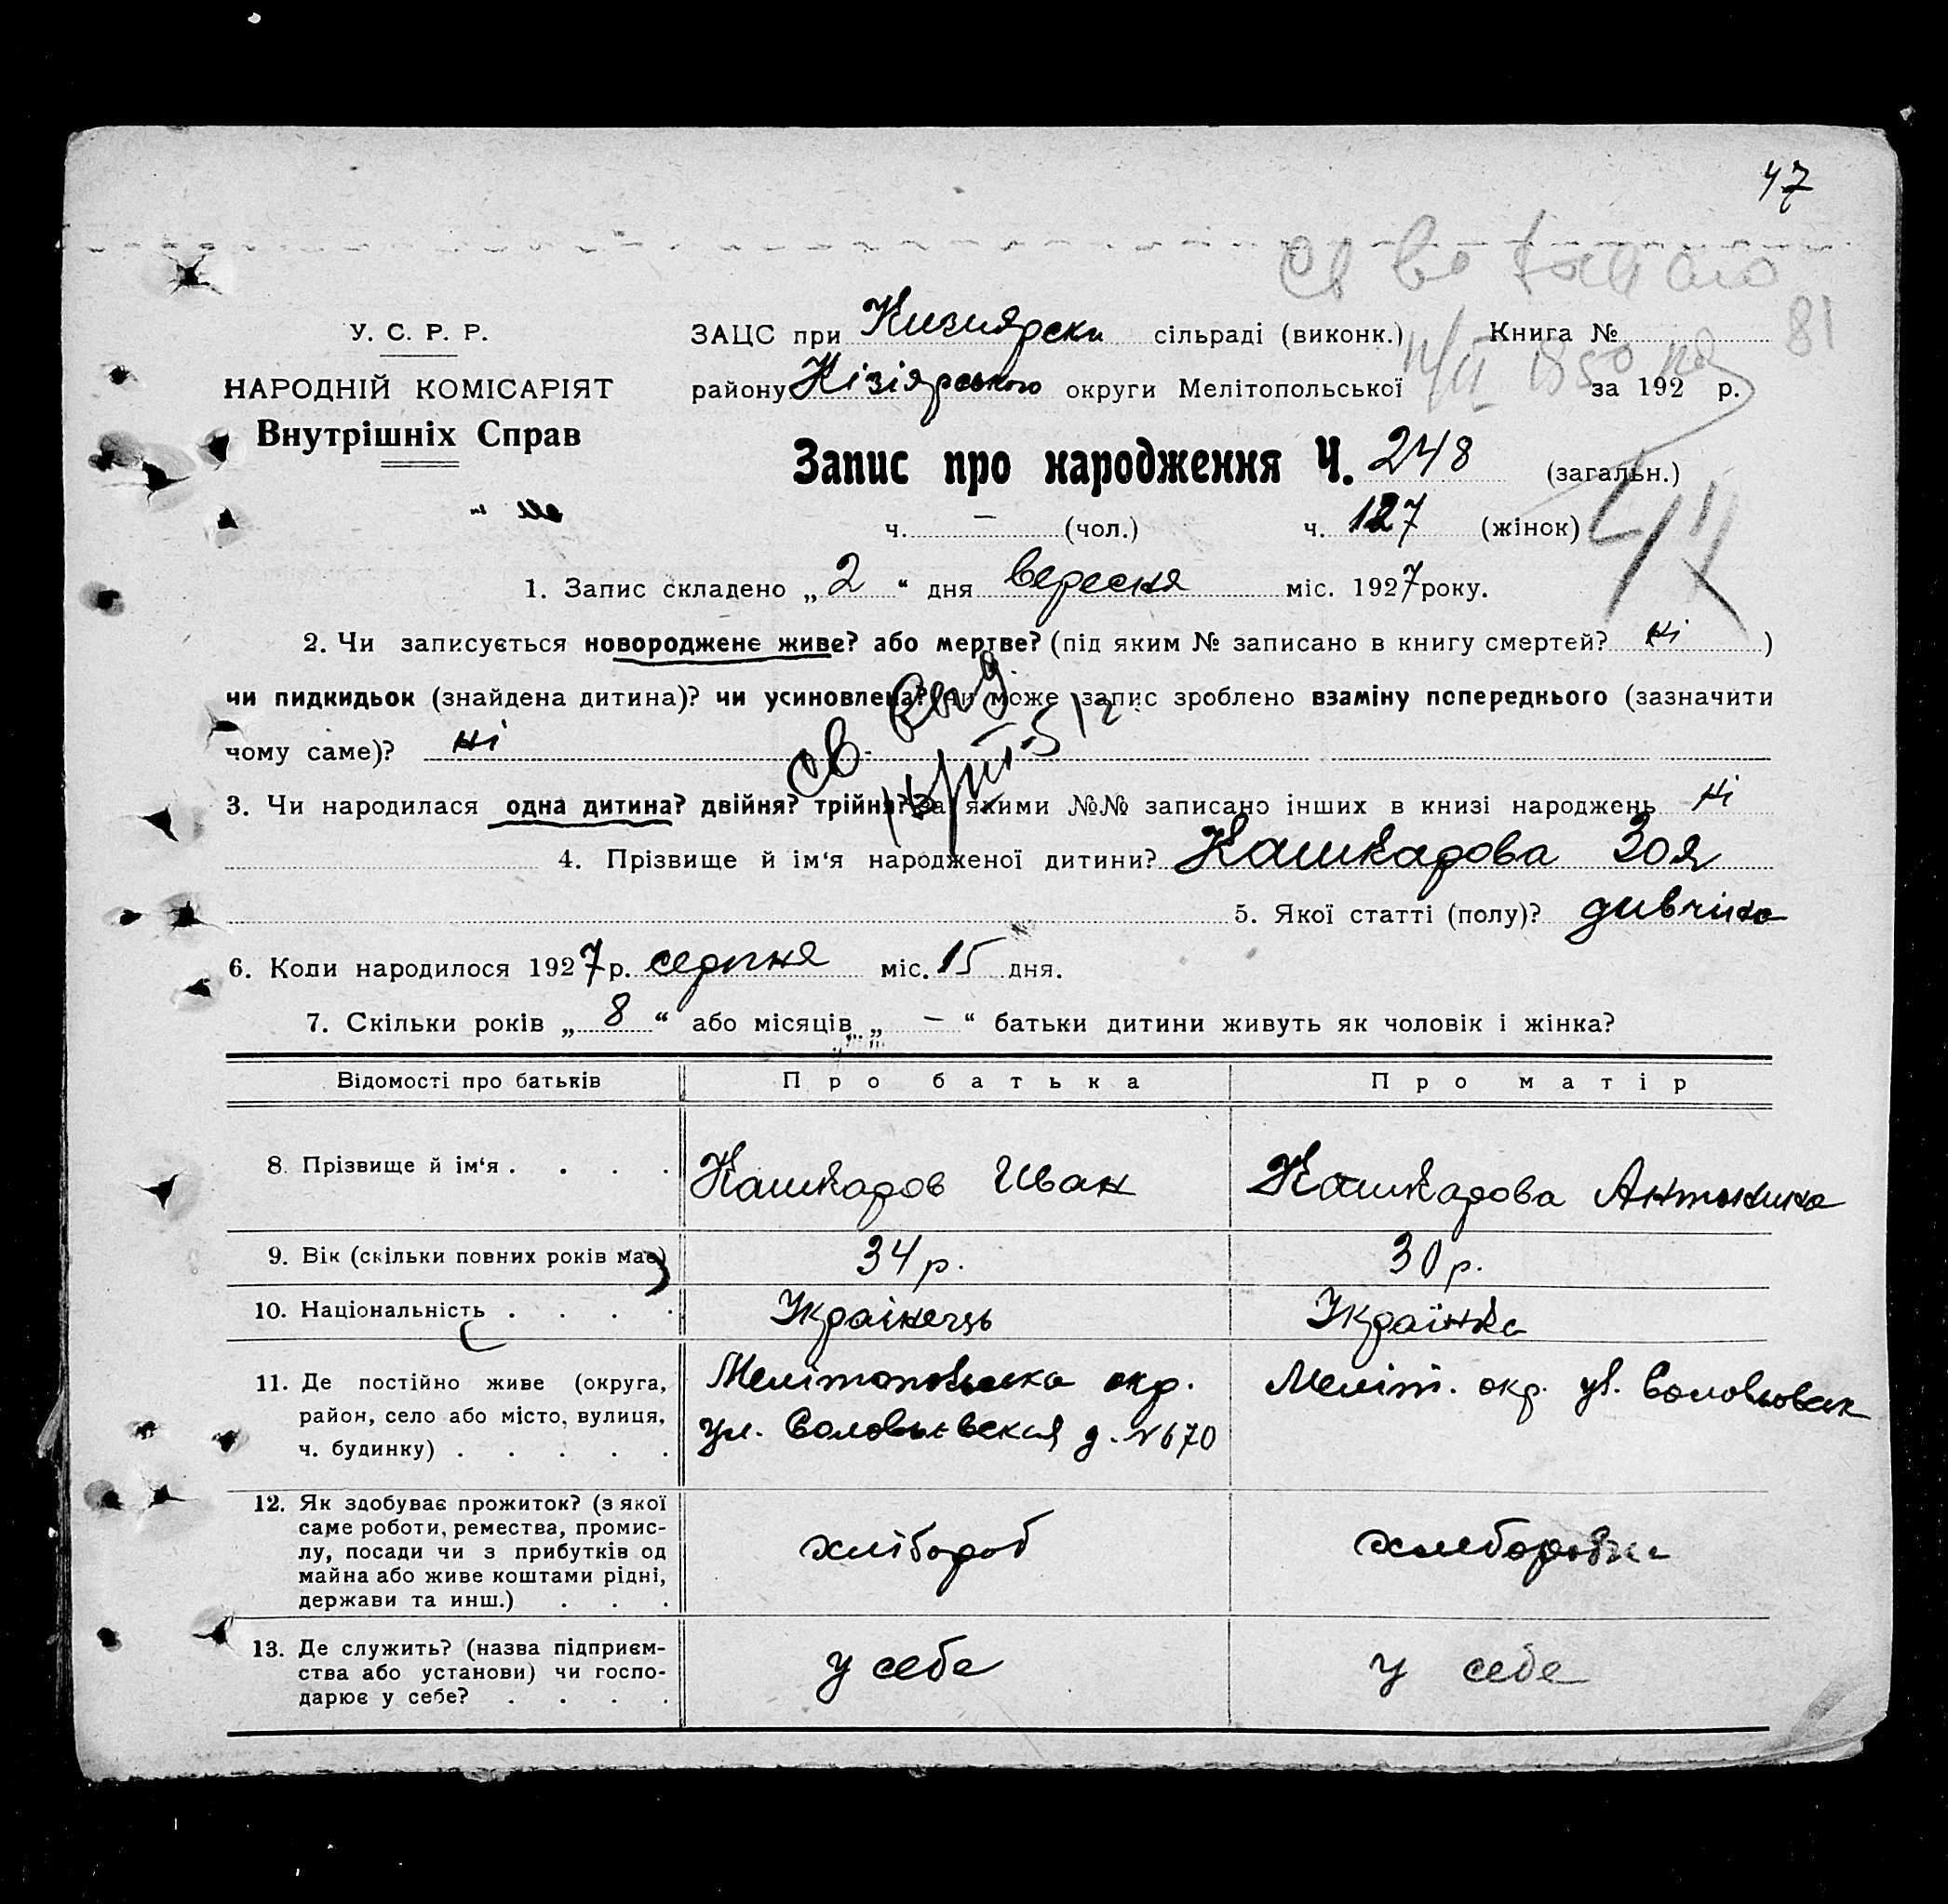 47
81
У. С. Р. Р.
НАРОДНІЙ КОМІСАРІЯТ
Внутрішніх Справ
ЗАЦС при Кизиярски сільраді (виконк.) Книга №
району Кізіярського округи Мелітопольської за 192 р.
Запис про народження Ч. 248 (загальн.)
ч. — (чол.) ч. 127 (жінок)
1. Запис складено „ 2 “ дня вересня міс. 1927 року.
2. Чи записується новороджене живе? або мертве? (під яким № записано в книгу смертей? ні )
чи пидкидьок (знайдена дитина)? чи усиновлена? чи може запис зроблено взаміну попереднього (зазначити
чому саме)? ні
3. Чи народилася одна дитина? двійня? трійня? За якими №№ записано інших в книзі народжень ні
4. Прізвище й ім‘я народженої дитини? Кашкарова Зоя
5. Якої статті (полу)? дивчина
6. Коли народилося 1927 р. серпня міс. 15 дня.
7. Скільки років „ 8 “ або місяців „ — “ батьки дитини живуть як чоловік і жінка?
Відомості про батьків Про батька Про матір
8. Прізвище й ім‘я . . . . Кашкаров Иван Кашкарова Антонина
9. Вік (скільки повних років має) 34 р. 30 р.
10. Національність . . . . Українець Українка
11. Де постійно живе (округа,
район, село або місто, вулиця,
ч. будинку) . . . . .
Мелітопольска окр.
ул. Соловьевская д. №670
Меліт. окр. ул. Соловьовск
12. Як здобуває прожиток? (з якої
саме роботи, ремества, промис-
лу, посади чи з прибутків од
майна або живе коштами рідні,
держави та инш.) . . .
хлібороб
хлеборобка
13. Де служить? (назва підприєм-
ства або установи) чи госпо-
дарює у себе? . . . .
у себе
у себе